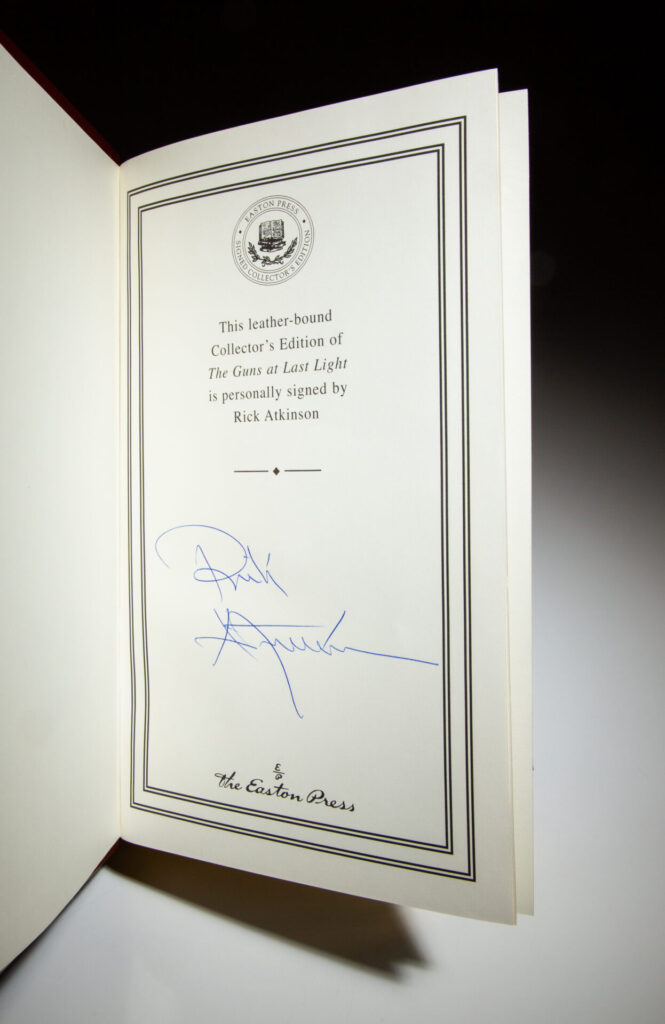 EASTON PRESS
SIGNED COLLECTOR'S EDITION
This leather-bound
Collector's Edition of
The Guns at Last Light
is personally signed by
Rick Atkinson
Rick
Atkinson
E/P
the Easton Press